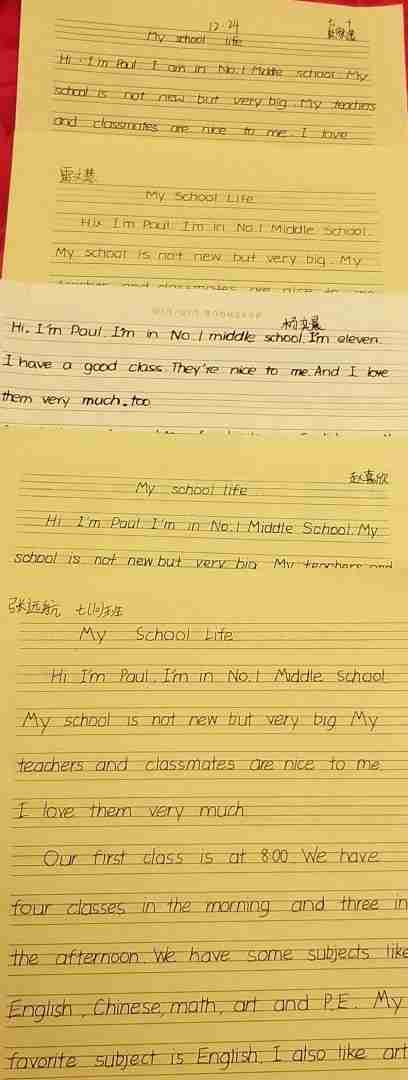 12.24
My school life
Hi. I'm Paul I am in No.1 Middle school. My
school is not new but very big. My teachers
and classmates are nice to me. I love
My School Life
Hi, I'm Paul I'm in No.1 Middle School.
My school is not new but very big. My
teacher and classmates are nice to me
杨奕晨
Hi, I'm Paul. I'm in No.1 middle school. I'm eleven.
I have a good class. They're nice to me. And I love
them very much, too
赵嘉欣
My school life
Hi I'm Paul. I'm in No.1 Middle School. My
school is not new but very big My teachers and
张远航 七(10)班
My School Life
Hi I'm Paul. I'm in No.1 Middle School
My school is not new but very big My
teachers and classmates are nice to me
I love them very much
Our first class is at 8:00 We have
four classes in the morning and three in
the afternoon. We have some subjects like
English, Chinese, math, art and P.E. My
favorite subject is English. I also like art